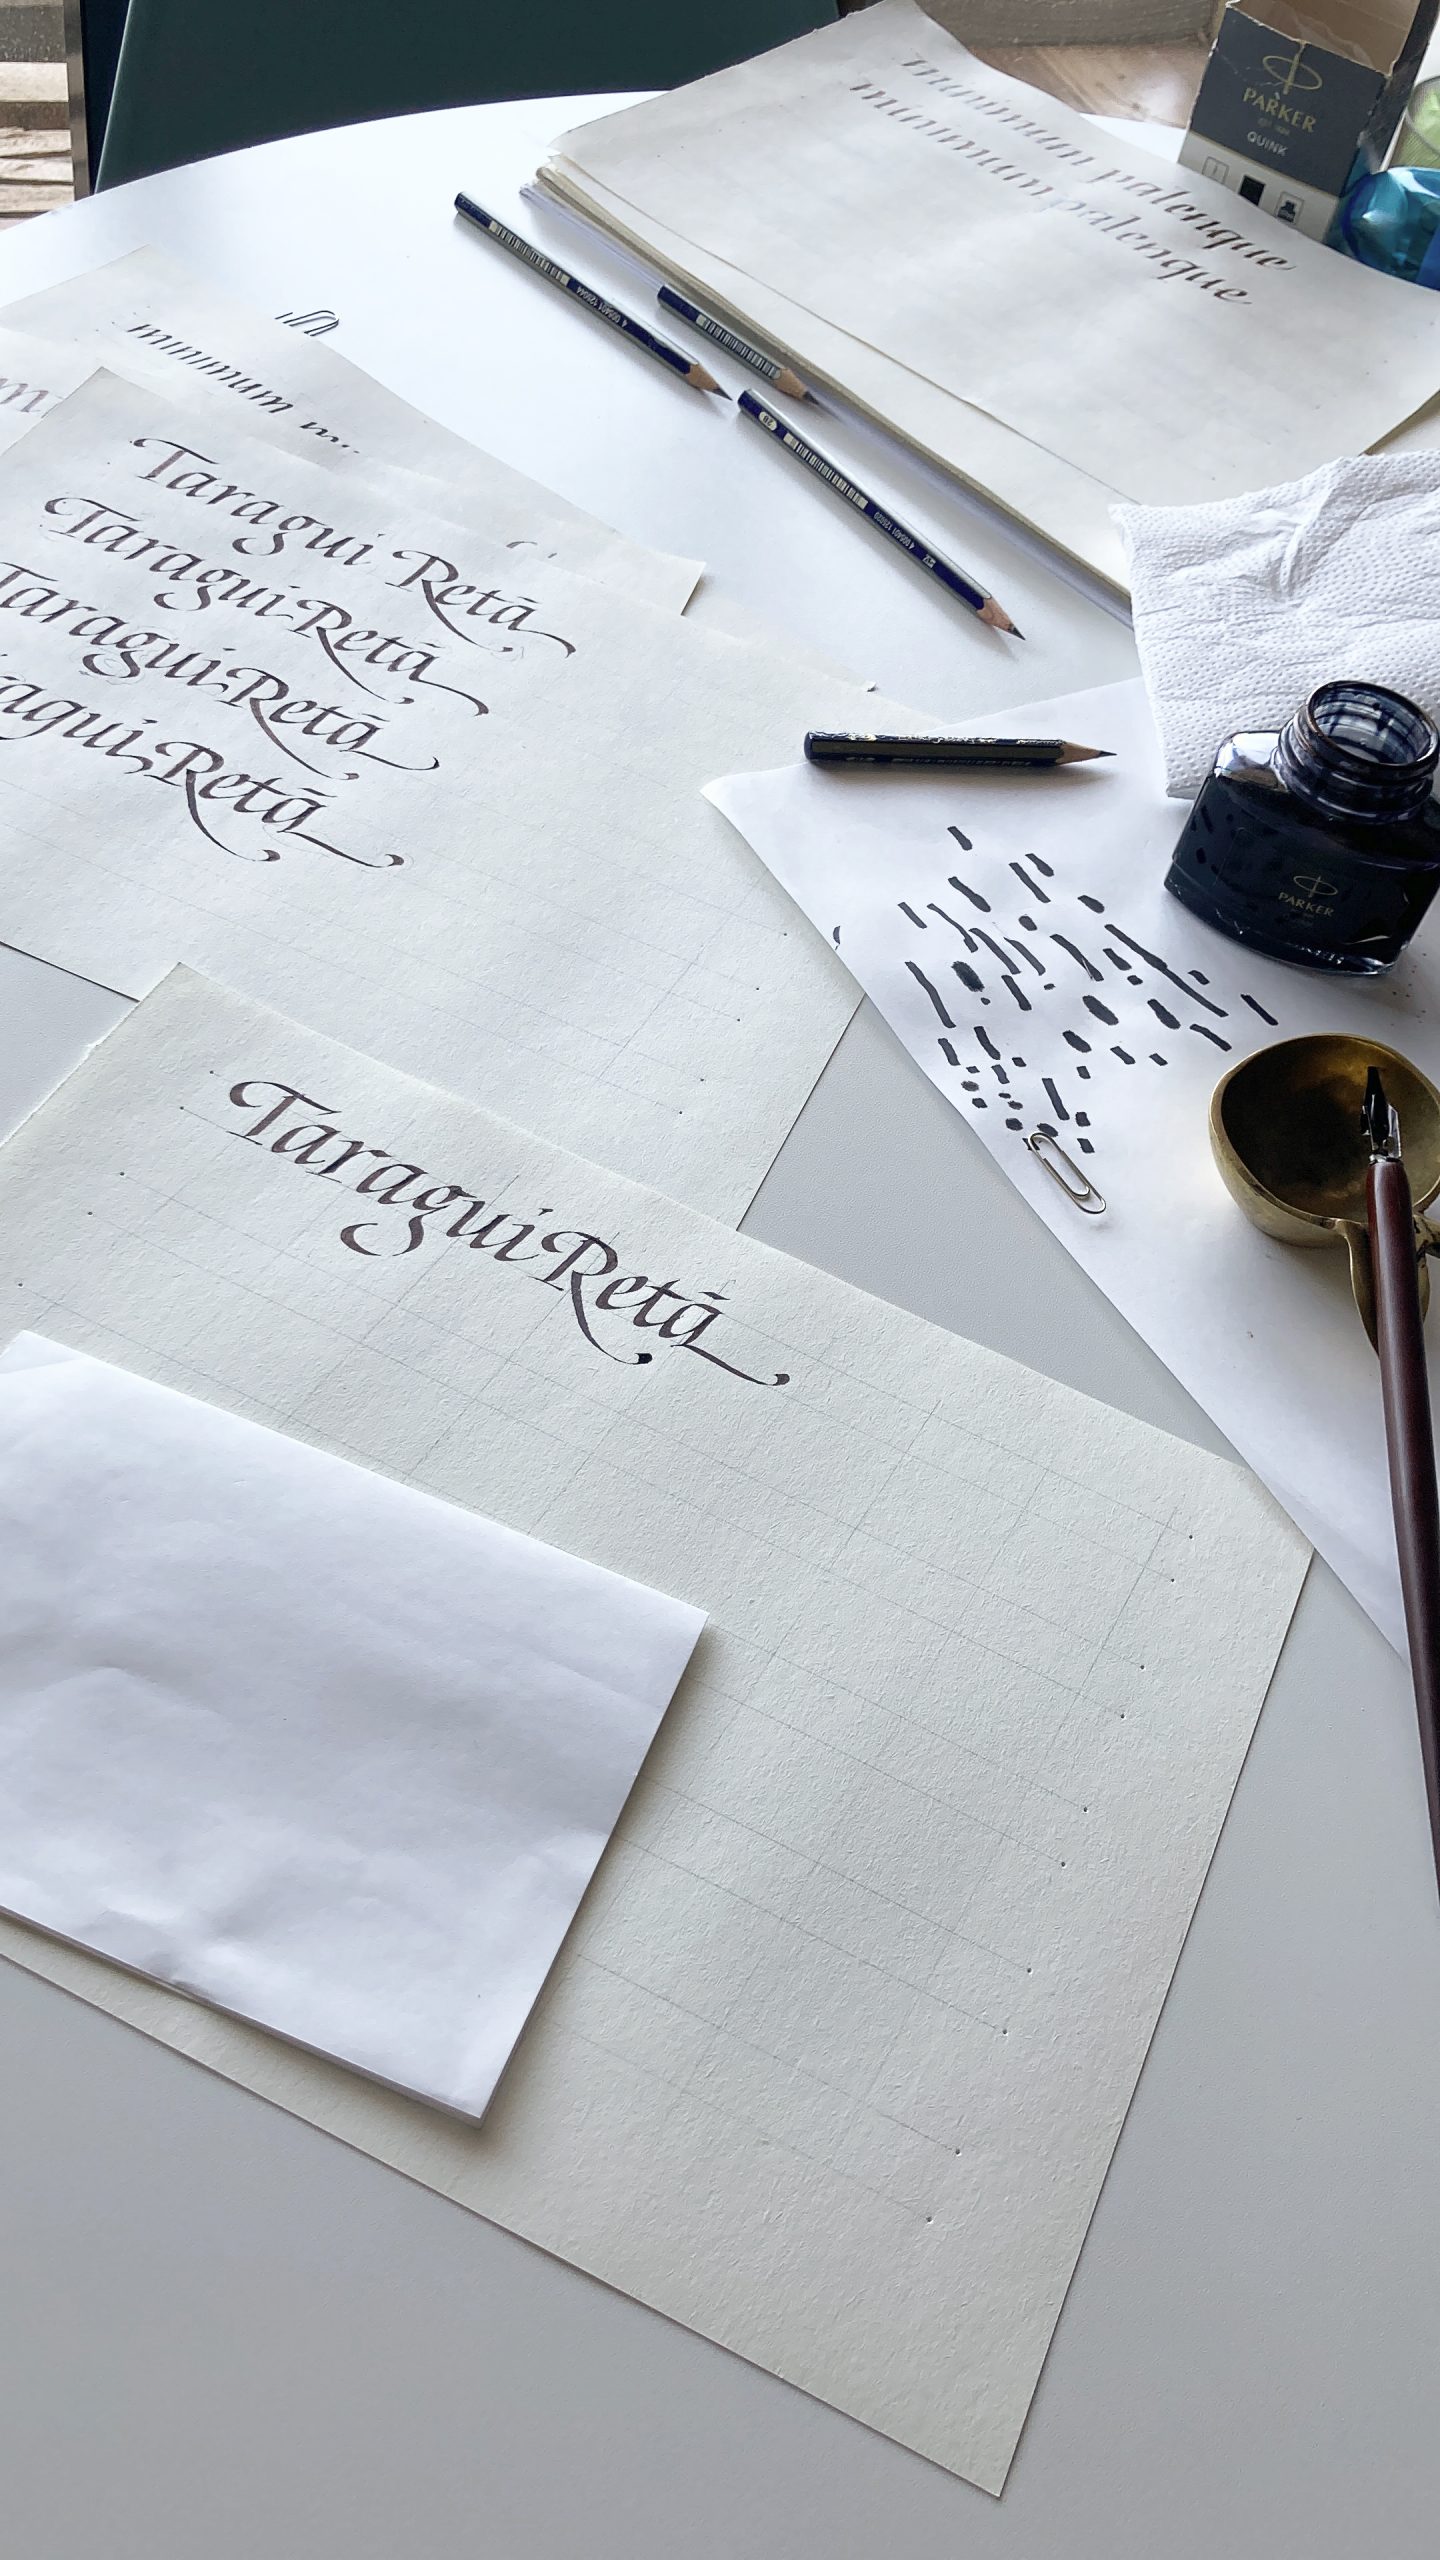 minimum palenque
minimum palenque
PARKER
QUINK
minimum
Taragui Retã
Taragui Retã
Taragui Retã
Taragui Retã
PARKER
Taragui Retã